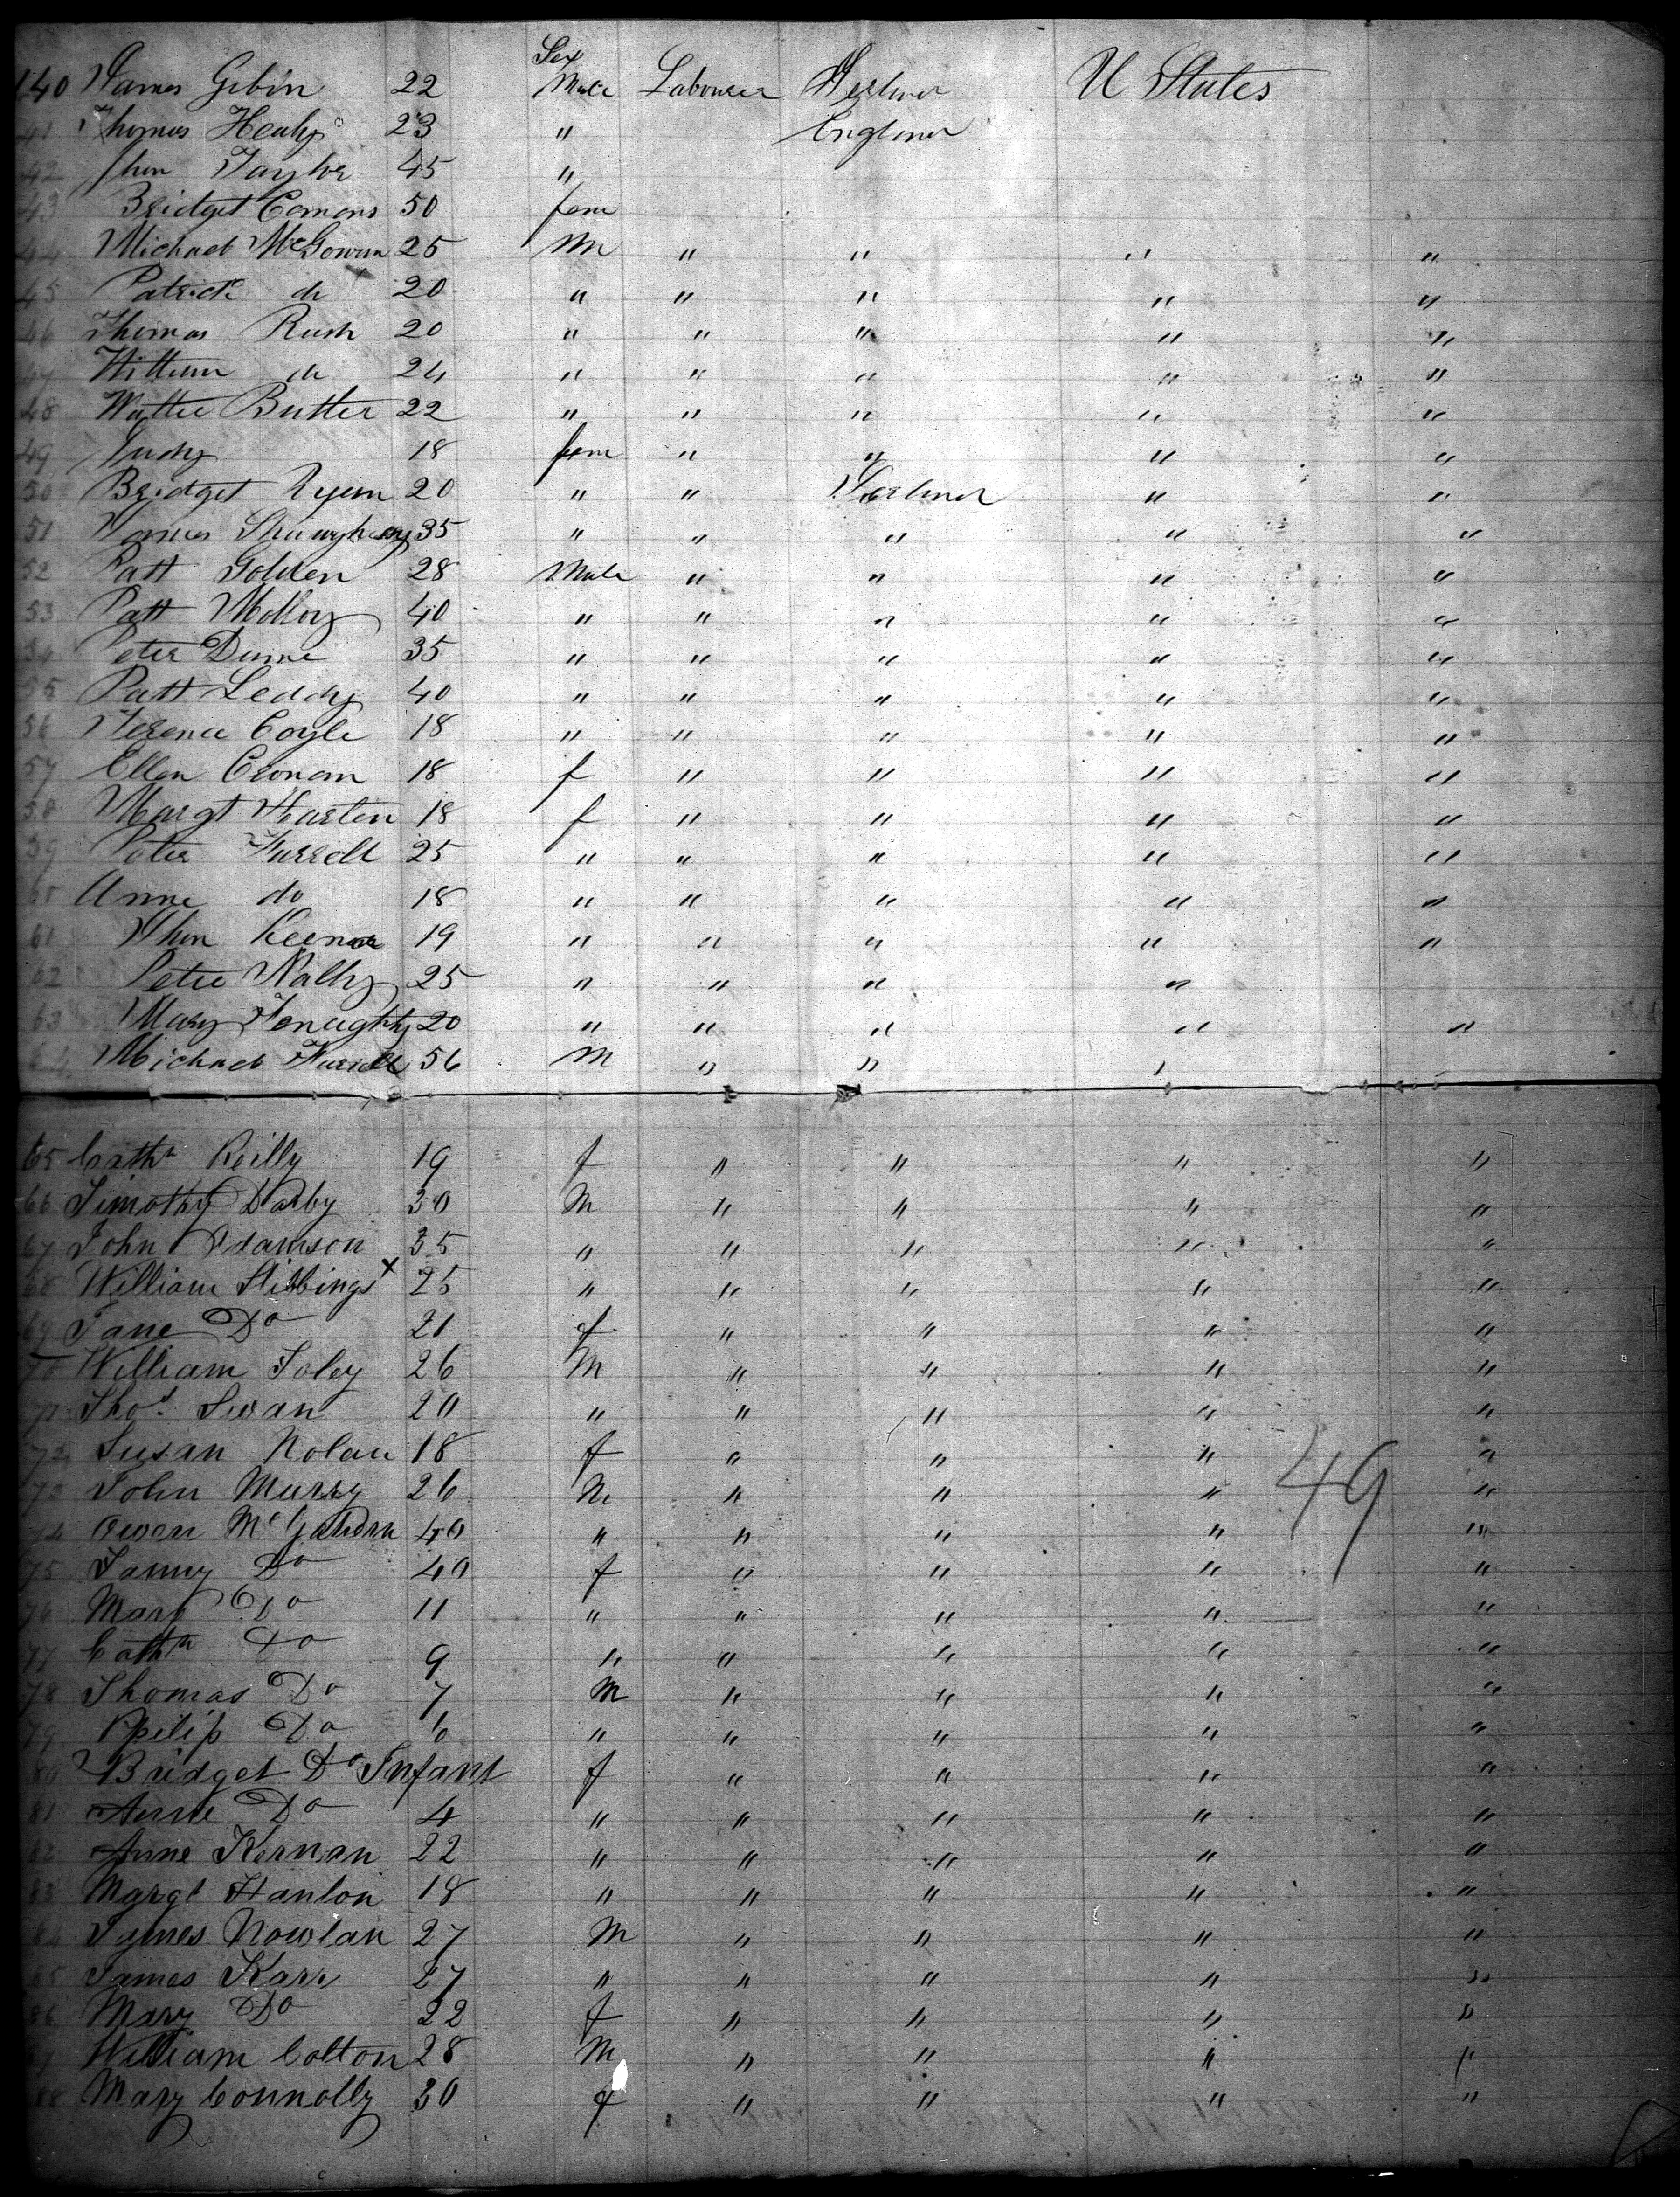 Sex
140 James Gebin 22 Male Labourer Ireland U States
41 Thomas Healy 23 " England
42 Jhon Taylor 45 "
43 Bridget Comons 50 fem
44 Michael McGowan 25 M " " " "
45 Patrick do 20 " " " " "
46 Thomas Rush 20 " " " " "
47 William do 24 " " " " "
48 Walter Butler 22 " " " " "
49 Judy 18 fem " " " "
50 Bridget Ryan 20 " " Ireland " "
51 James Shaughnesy 35 " " " " "
52 Patt Golden 28 Male " " " "
53 Patt Molloy 40 " " " " "
54 Peter Dunne 35 " " " " "
55 Patt Leddy 40 " " " " "
56 Terence Coyle 18 " " " " "
57 Ellen Cronan 18 f " " " "
58 Margt Harten 18 f " " " "
59 Peter Farrell 25 " " " " "
60 Anne do 18 " " " " "
61 Jhon Keenan 19 " " " " "
62 Peter Nally 25 " " " "
63 Mary Fenaghty 20 " " " " "
64 Michael Farrell 56 M " " "
65 Cathn Reilly 19 f " " " "
66 Timothy Darby 30 M " " " "
67 John Adamson 35 " " " " "
68 William Stibbings x 25 " " " " "
69 Jane Do 21 f " " " "
70 William Foley 26 M " " " "
71 Thos Swan 20 " " " " "
72 Susan Nolan 18 f " " " "
73 John Murry 26 M " " " "
49
74 Owen McGauran 40 " " " " "
75 Fanny Do 40 f " " " "
76 Mary Do 11 " " " " "
77 Cathn Do 9 " " " " "
78 Thomas Do 7 M " " " "
79 Philip Do 6 " " " " "
80 Bridget Do Infant f " " " "
81 Anne Do 4 " " " " "
82 Anne Kernan 22 " " " " "
83 Margt Hanlon 18 " " " " "
84 James Nowlan 27 M " " " "
85 James Karr 27 " " " " "
86 Mary Do 22 f " " " "
87 William Colton 28 M " " " "
88 Mary Connolly 30 f " " " "